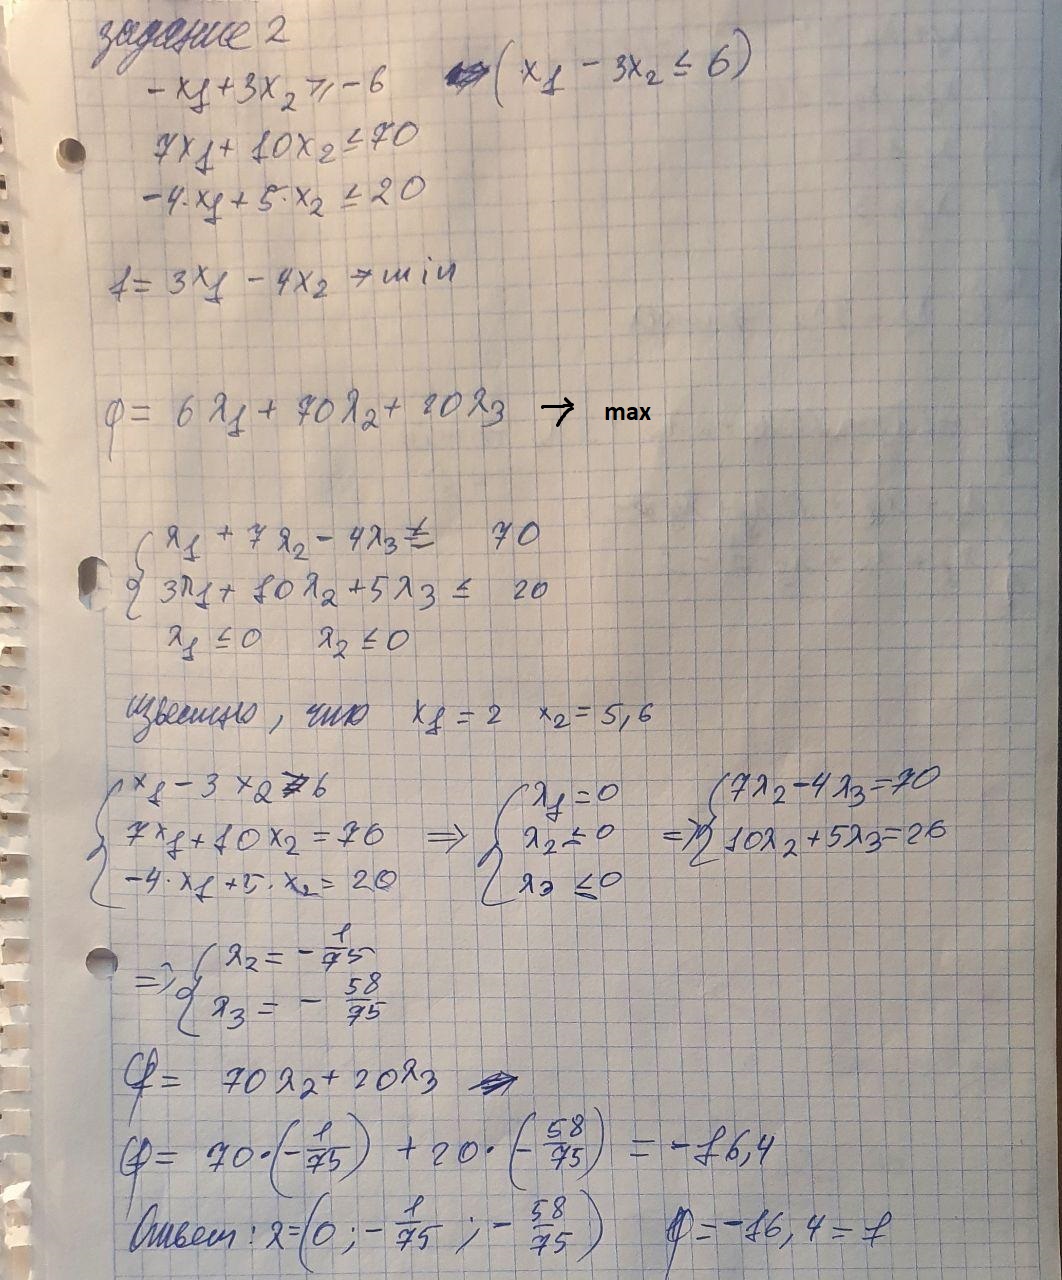 задание 2
-x₁+3x₂ ≥ -6 (x₁ - 3x₂ ≤ 6)
7x₁ + 10x₂ ≤ 70
-4·x₁ + 5·x₂ ≤ 20
f = 3x₁ - 4x₂ → min
φ = 6λ₁ + 70λ₂ + 20λ₃ → max
{ λ₁ + 7λ₂ - 4λ₃ ≤ 70
3λ₁ + 10λ₂ + 5λ₃ ≤ 20
λ₁ ≤ 0 λ₂ ≤ 0
известно, что x₁ = 2 x₂ = 5,6
{ x₁ - 3x₂ 6 { λ₁ = 0 { 7λ₂ - 4λ₃ = 70
7x₁ + 10x₂ = 70 ⇒ λ₂ ≤ 0 ⇒ 10λ₂ + 5λ₃ = 20
-4·x₁ + 5·x₂ = 20 λ₃ ≤ 0
⇒ { λ₂ = - 1/75
λ₃ = - 58/75
φ = 70λ₂ + 20λ₃
φ = 70·(-1/75) + 20·(-58/75) = -16,4
Ответ: λ = (0 ; -1/75 ; -58/75) φ = -16,4 = f